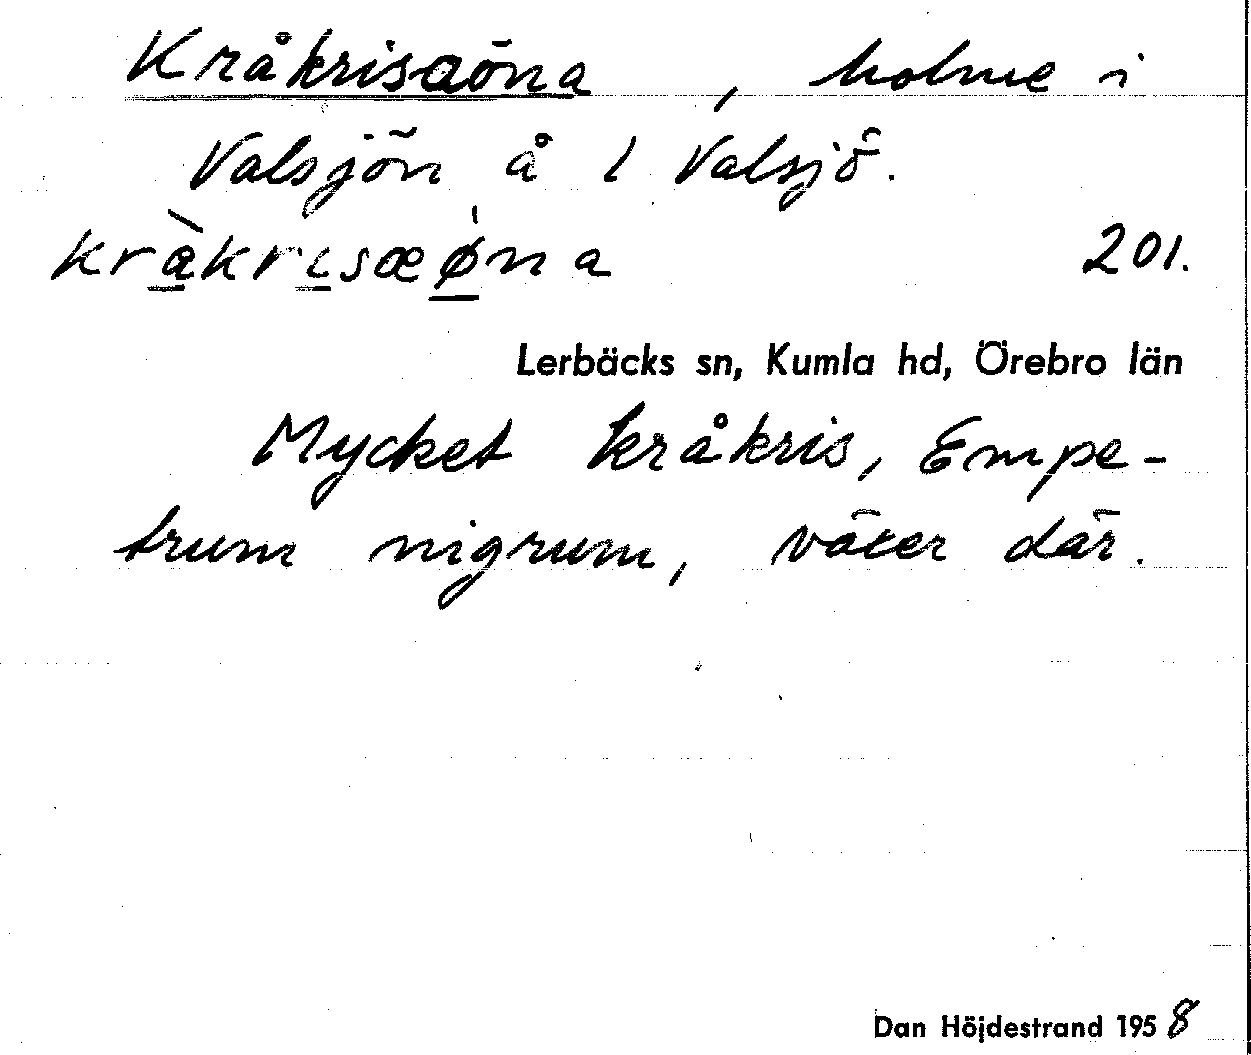 Kråkrisaöna, holme i
Valsjön å 1 Valsjö.
kràkrisæøna 201.
Lerbäcks sn, Kumla hd, Örebro län
Mycket kråkris, Empe-
trum nigrum, växer där.
Dan Höjdestrand 1958